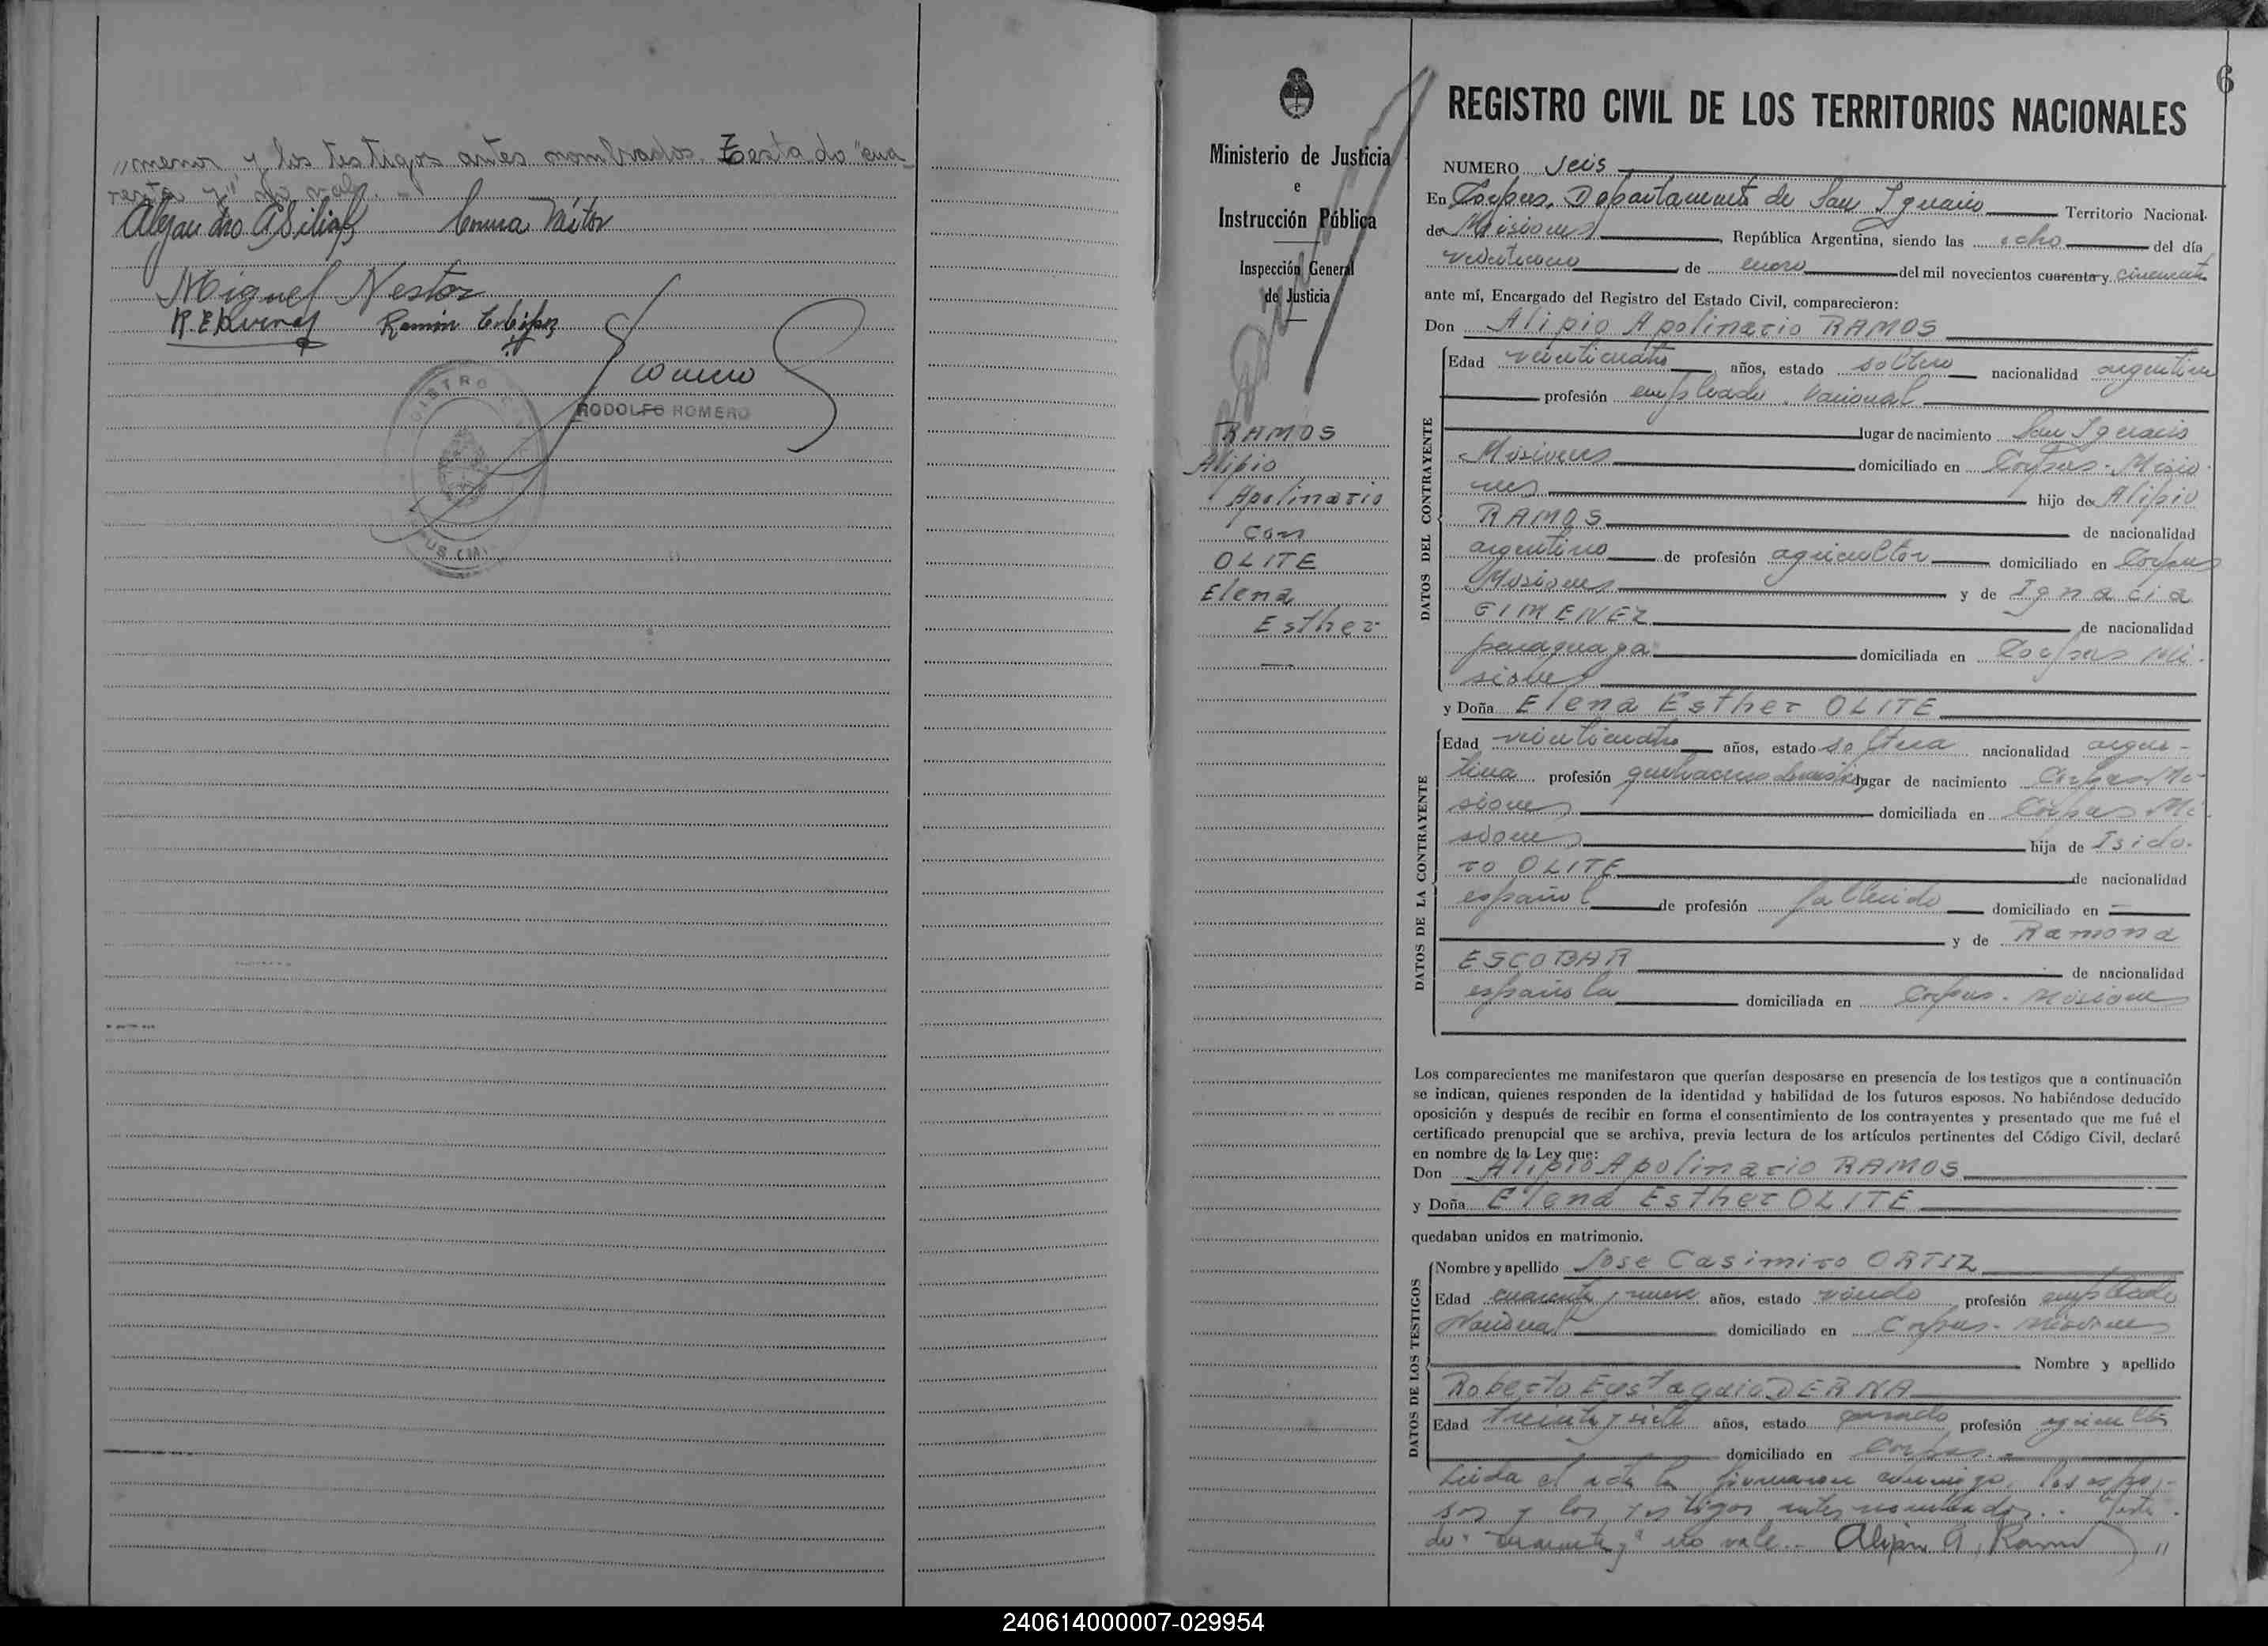 „menor y los testigos antes nombrados Testado "cua-
renta y" no vale. -
Miguel Nestor
RODOLFO ROMERO
6
Ministerio de Justicia
e
Instrucción Pública
Inspección General
de Justicia
RAMOS
Alipio
Apolinario
Con
OLITE
Elena
Esther
REGISTRO CIVIL DE LOS TERRITORIOS NACIONALES
NUMERO Seis
En Corpus, Departamento de San Ignacio Territorio Nacional
de Misiones, República Argentina, siendo las ocho del día
de enero del mil novecientos cuarenta y cincuenta
ante mí, Encargado del Registro del Estado Civil, comparecieron:
Don Alipio Apolinario RAMOS
DATOS DEL CONTRAYENTE
Edad veinticuatro años, estado soltero nacionalidad argentino
profesión empleado Nacional
lugar de nacimiento San Ignacio
Misiones domiciliado en Corpus - Misio-
nes hijo de Alipio
RAMOS de nacionalidad
argentino de profesión agricultor domiciliado en Corpus
Misiones y de Ignacia
GIMENEZ de nacionalidad
paraguaya domiciliada en Corpus Mi-
siones
y Doña Elena Esther OLITE
DATOS DE LA CONTRAYENTE
Edad veinticuatro años, estado soltera nacionalidad argen-
tina profesión quehaceres domésticos lugar de nacimiento Corpus Mi-
siones domiciliada en Corpus Mi-
siones hija de Isido-
ro OLITE de nacionalidad
español de profesión fallecido domiciliado en
y de Ramona
ESCOBAR de nacionalidad
española domiciliada en Corpus - Misiones
Los comparecientes me manifestaron que querían desposarse en presencia de los testigos que a continuación
se indican, quienes responden de la identidad y habilidad de los futuros esposos. No habiéndose deducido
oposición y después de recibir en forma el consentimiento de los contrayentes y presentado que me fué el
certificado prenupcial que se archiva, previa lectura de los artículos pertinentes del Código Civil, declaré
en nombre de la Ley que:
Don Alipio Apolinario RAMOS
y Doña Elena Esther OLITE
quedaban unidos en matrimonio.
DATOS DE LOS TESTIGOS
Nombre y apellido Jose Casimiro ORTIZ
Edad cuarenta y nueve años, estado viudo profesión empleado
Nacional domiciliado en Corpus - Misiones
Nombre y apellido
Roberto DERNA
Edad treinta y siete años, estado casado profesión agricultor
domiciliado en Corpus -
Leida el acta la firmaron conmigo, los espo-
sos y los testigos antes nombrados. - Testa-
do "cuarenta y" no vale. - Alipio A. Ramos "
240614000007-029954